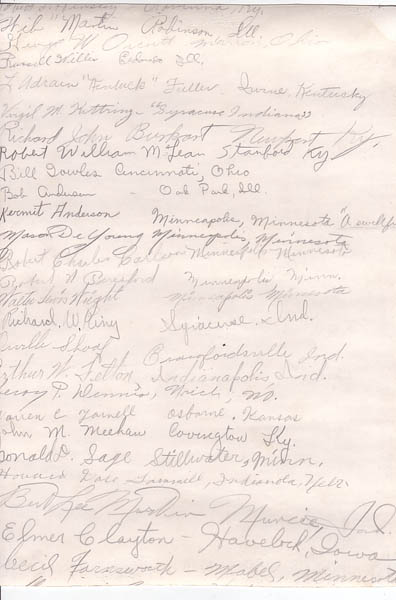 Ky.
"Martin Robinson, Ill.
W. Orcutt Marion, Ohio
Russell Willer Ill.
F. Adrain "Kentuck" Fuller, Irvine, Kentucky
Virgil M. "Syracuse Indiana"
Richard John Burkart Newport Ky.
Robert William McLean Stanford Ky
Bill Fowles Cincinnati, Ohio
Bob Anderson - Oak Park, Ill.
Kermit Anderson Minneapolis, Minnesota
Mason De Young Minneapolis, Minnesota
Robert Charles Carlson Minneapolis Minnesota
Robert N. Minneapolis, Minn.
Wright Minneapolis Minnesota
Richard W. King Syracuse, Ind.
Crawfordsville Ind.
Arthur W. Felton, Indianapolis Ind.
P. Dennis,
Warren C Yarnell Osborne, Kansas
John M. Meehan Covington Ky.
Donald D. Sage Stillwater, Minn.
Howard Indianola, Nebr.
Bert Lee Martin Muncie, Ind.
Elmer Clayton - Havelock, Iowa
Cecil Farnsworth - Mabel, Minnesota